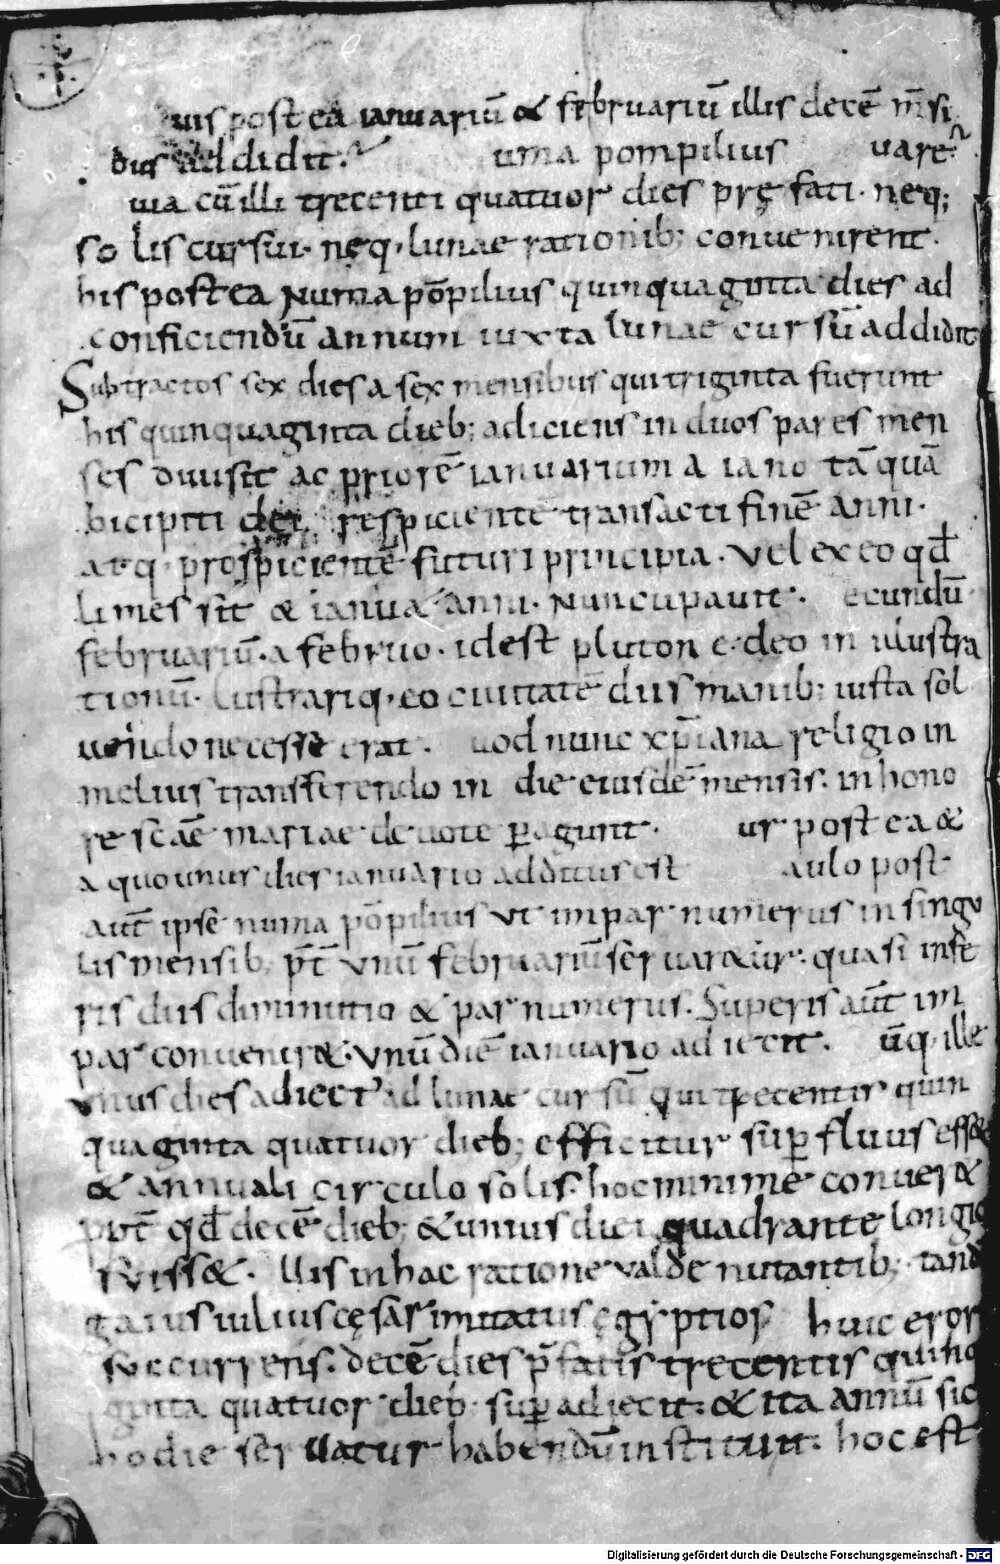 uis postea ianuariū & februariū illis decē m̄si
bus addidit. uma pompilius uare
uia cū illi trecenti quatuor dies prę fati. neq;
solis cursui. neq. lunae rationib; conuenirent.
his postea Numa pōpilius quinquaginta dies ad
conficiendū annum iuxta lunae cursū addidit
Subtractos sex dies a sex mensibus qui triginta fuerunt
his quinquaginta dieb; adiciens in duos pares men
ses diuisit ac priorē ianuarium a iano tā quā
bicipiti dei respiciente transacti finē anni.
atq. prospiciente futuri principia. Vel ex eo qd
limes sit & ianua anni. Nuncupauit. ecundū
februariū. a februo. idest plutone. deo in illustra
tionū. lustrariq. eo ciuitatē diis manib; iusta sol
uendo necesse erat. uod nunc xp̄iana religio in
melius transferendo in die eiusdē mensis. in hono
re scāe mariae deuote peragunt. ur postea &
a quo unus dies ianuario additus est aulo post
aut̄ ipse numa pōpilius ut impar numerus in singu
lis mensib; p̄t unū februariū seruar&ur. quasi infe
ris diis diminutio & par numerus. Superis aut̄ im
par conuenir&. Vnū diē ianuario adiecit. ūq. ille
unus dies adiect' ad lunae cursū qui trecentis quin
quaginta quatuor dieb; efficitur sup fluus ess&
& annuali circulo solis. hoc minime conuer&
p̄t qd decē dieb; & unius diei quadrante longi
fuiss&. llis in hac ratione valde nutantib; tand
gaius iulius cęsar imitatus ęgyptios huic eror
succurrens. decē dies p̄fatis trecentis quinq
ginta quatuor dieb; sup adiecit. & ita annū sic
hodie seruatur habendū instituit. hoc est
Digitalisierung gefördert durch die Deutsche Forschungsgemeinschaft - DFG